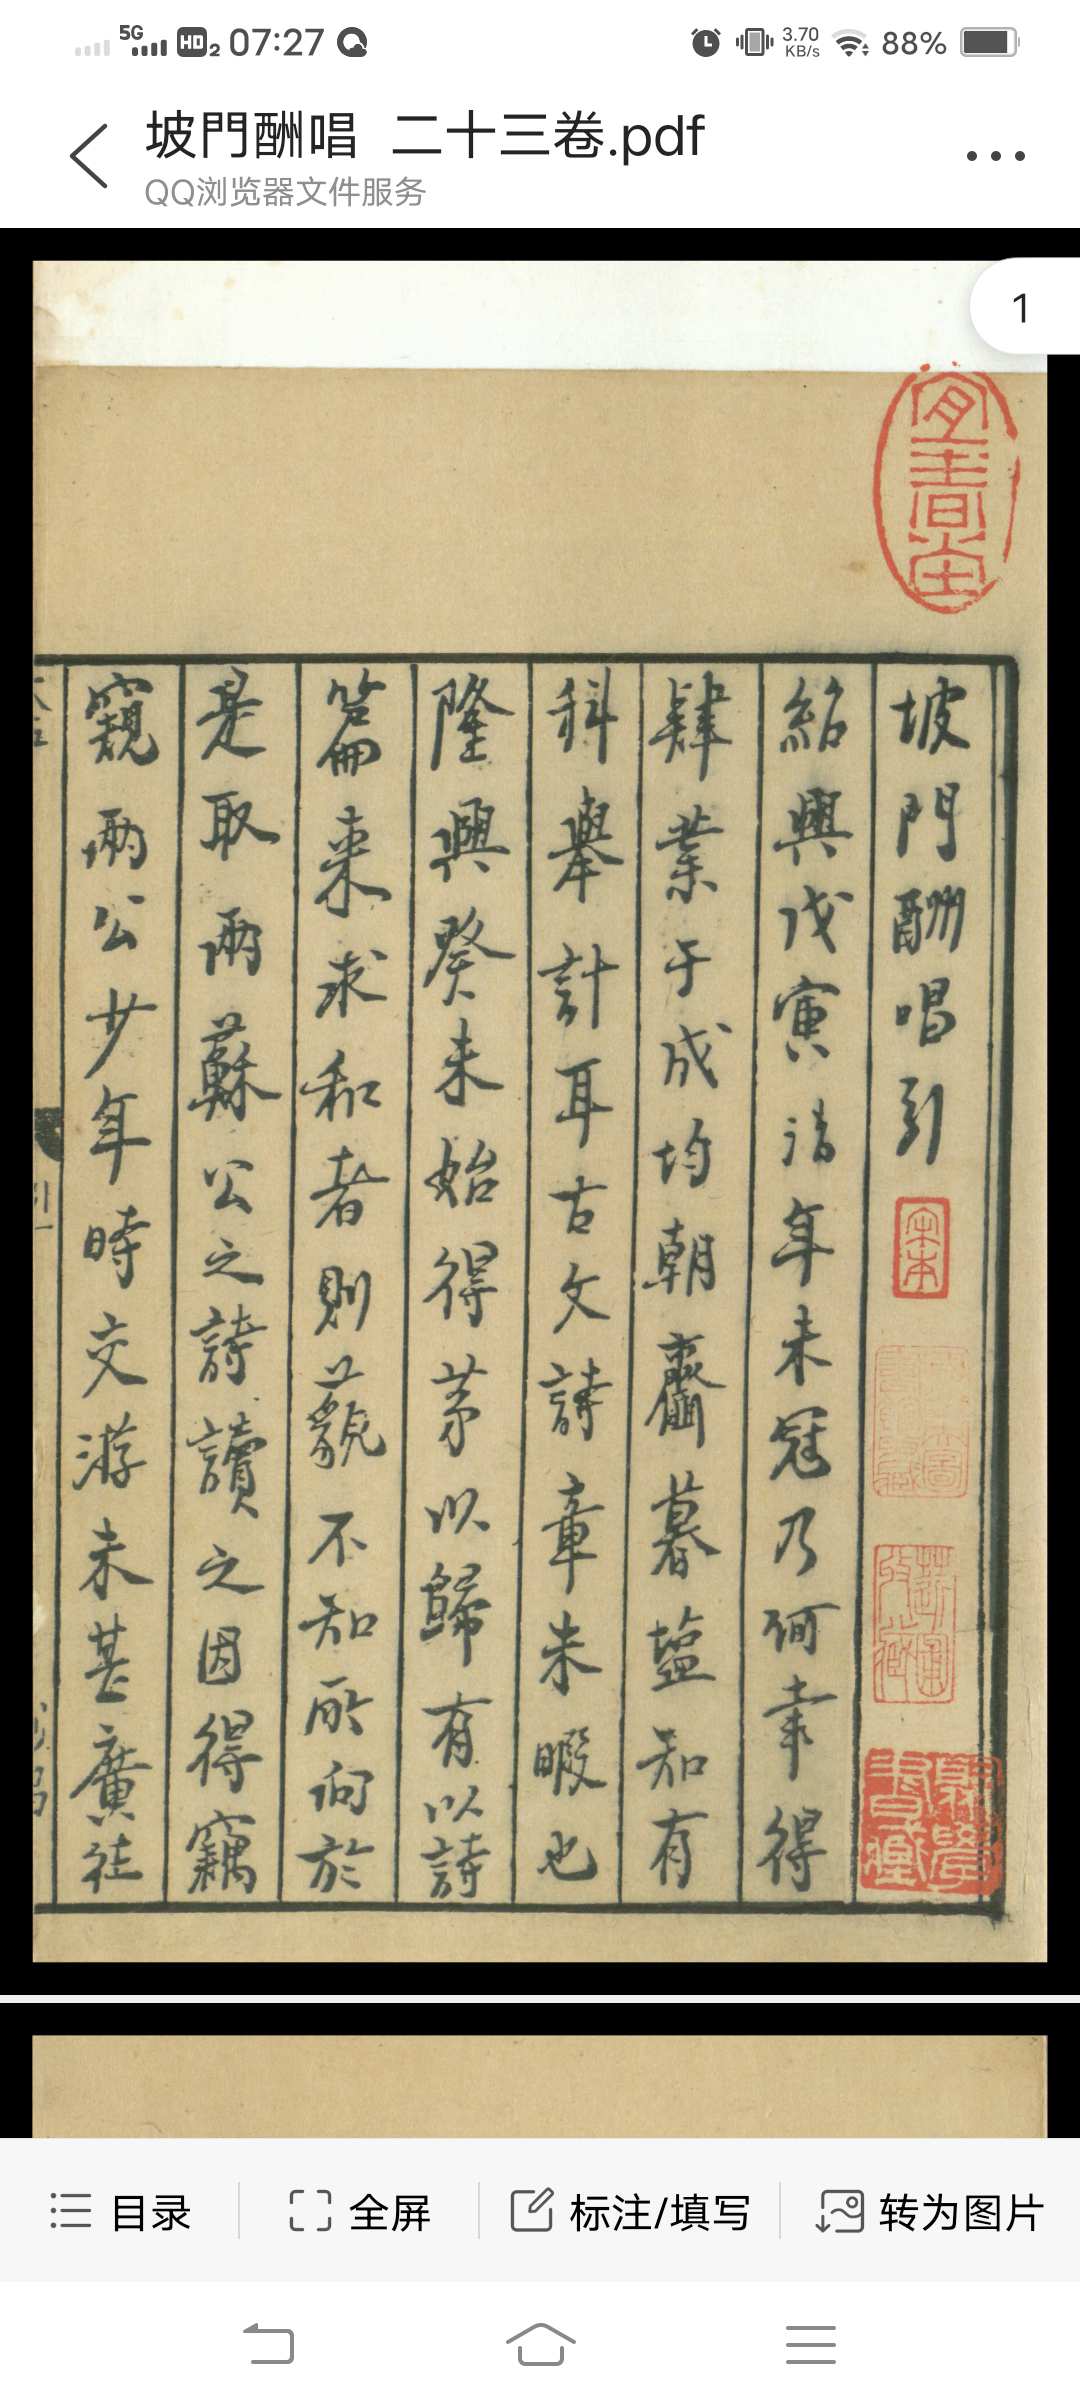 5G HD 2 07:27 3.70 KB/s 88%
坡門酬唱 二十三卷.pdf
QQ浏览器文件服务
1
宜春堂
坡門酬唱引
宋本
紹興戊寅浩年未冠乃何幸得
肄業于成均朝齏暮塩知有
科舉計耳古文詩章未暇也
隆興癸未始得茅以歸有以詩
篇来求和者則藐不知所向於
是取兩蘇公之詩讀之因得竊
窺兩公少年時交游未甚廣往
目录
全屏
标注/填写
转为图片